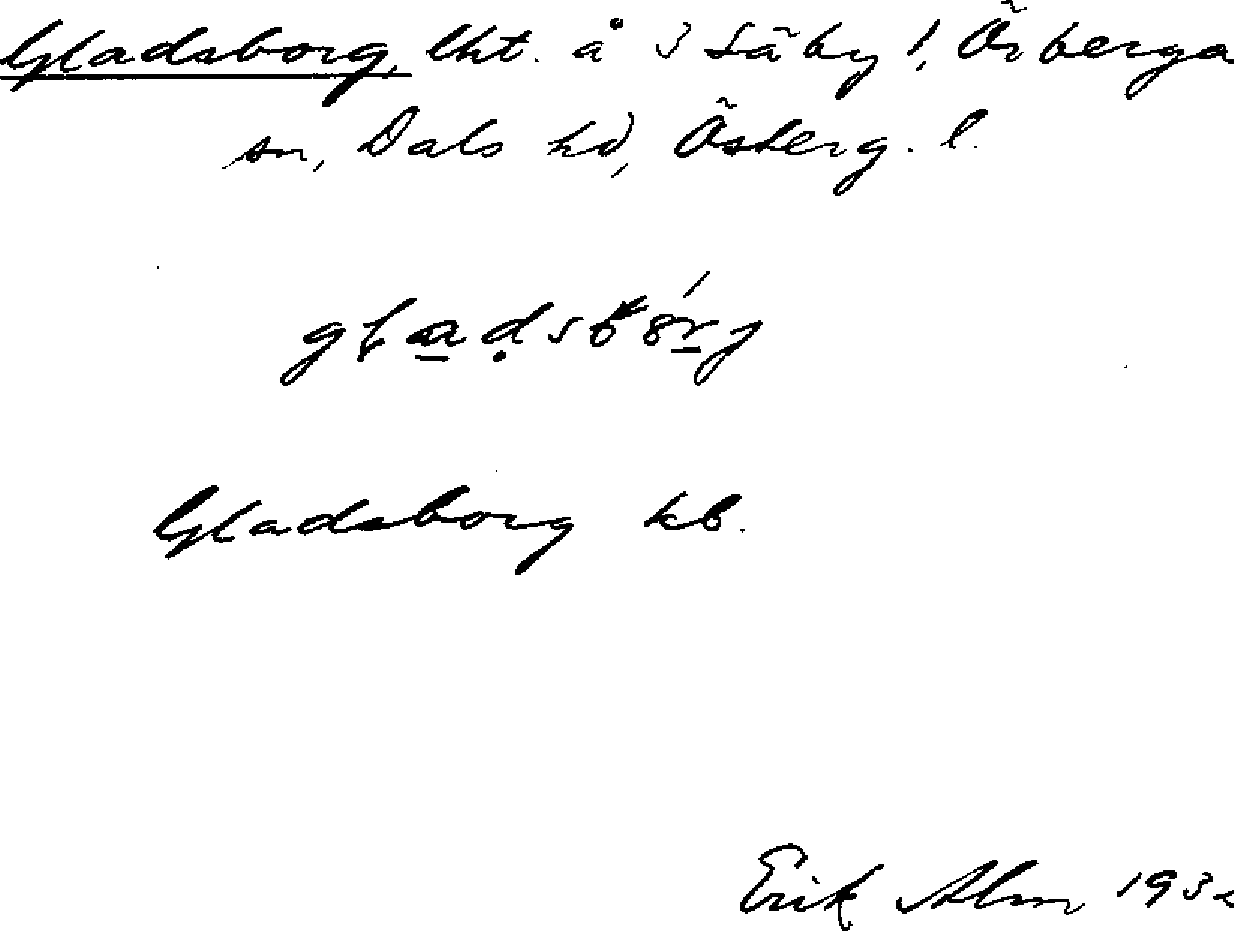 Gladsborg, lht. å 3 Säby !, Örberga
sn, Dals hd, Österg. l.
Gladsborg kb.
Erik Alm 1932